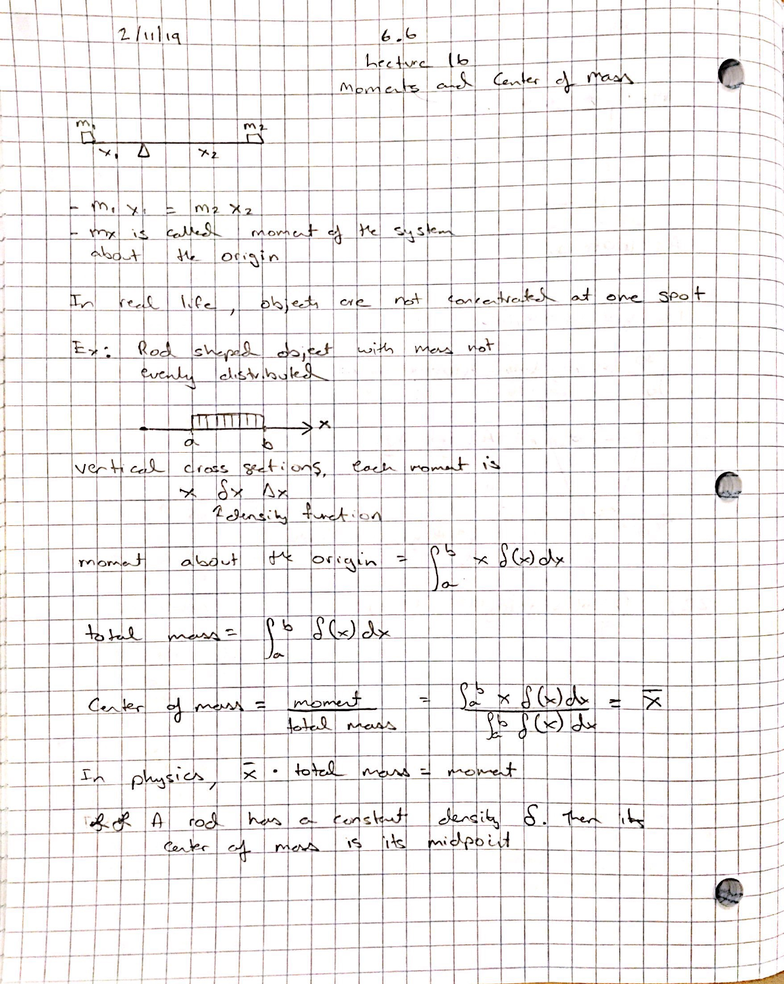 2/11/19
6.6
Lecture 16
Moments and Center of mass
m₁ m₂
x₁ Δ x₂
- m₁ x₁ = m₂ x₂
- mx is called moment of the system
about the origin
In real life, objects are not concentrated at one spot
Ex: Rod shaped object with mass not
evenly distributed
x
a b
vertical cross sections, each moment is
x δx Δx
↑ density function
moment about the origin = ∫ₐᵇ x δ(x) dx
total mass = ∫ₐᵇ δ(x) dx
Center of mass = moment / total mass = ∫ₐᵇ x δ(x) dx / ∫ₐᵇ δ(x) dx = x̄
In physics, x̄ · total mass = moment
A rod has a constant density δ. Then its
center of mass is its midpoint